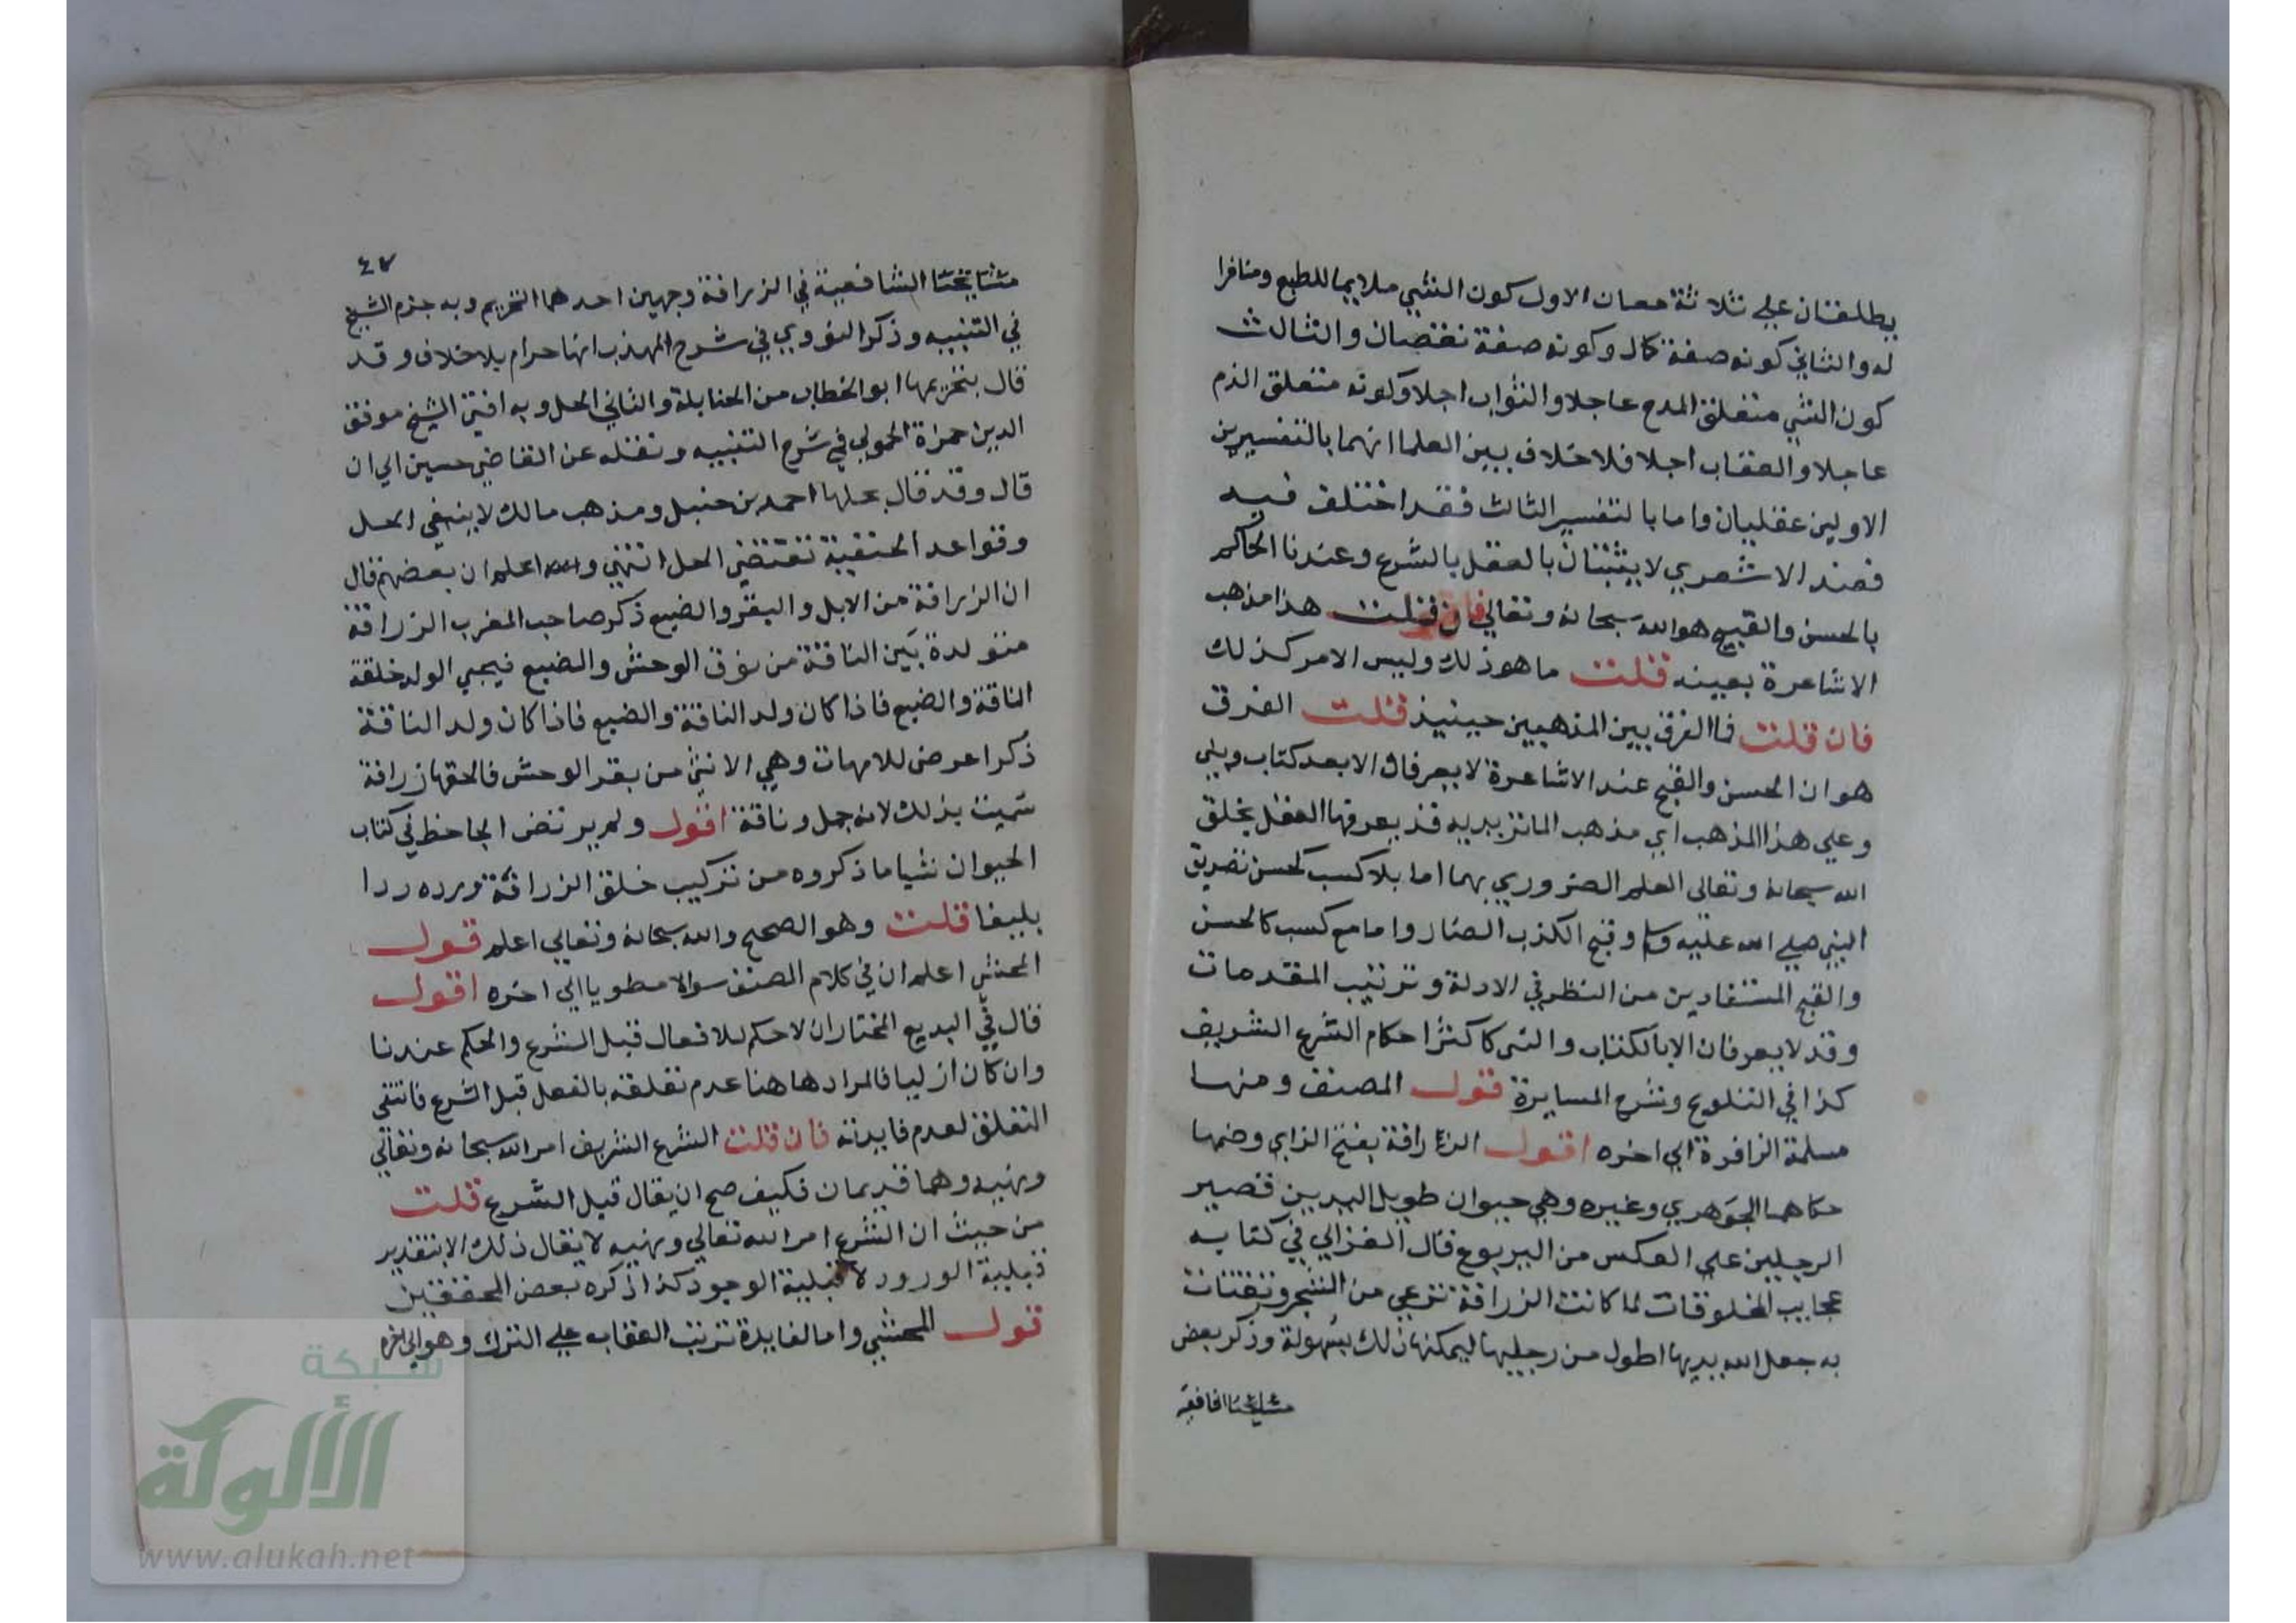 يطلقان علي ثلاثة معان الاول كون الشي ملايما للطبع ومنافرا
له والثاني كونه صفة كمال وكونه صفة نقصان والثالث
كون الشي متعلق المدح عاجلا والثواب اجلا وكونه متعلق الذم
عاجلا والعقاب اجلا فلا خلاف بين العلما انهما بالتفسيرين
الاولين عقليان واما بالتفسير الثالث فقد اختلف فيه
فعند الاشعري لا يثبتان بالعقل بالشرع وعندنا الحاكم
بالحسن والقبيح هو الله سبحانه وتعالي فان قلت هذا مذهب
الاشاعرة بعينه قلت ما هو ذلك وليس الامر كذلك
فان قلت فما الفرق بين المذهبين حينيذ قلت الفرق
هو ان الحسن والقبح عند الاشاعرة لا يعرفان الا بعد كتاب ونبي
وعلي هذا المذهب اي مذهب الماتريديه قد يعرفها العقل بخلق
الله سبحانه وتعالى العلم الضروري بهما اما بلا كسب كحسن تصديق
النبي صلي الله عليه وسلم وقبح الكذب الضار واما مع كسب كالحسن
والقبح المستفادين من النظر في الادلة وترتيب المقدمات
وقد لا يعرفان الا بالكتاب والنبي كاكثر احكام الشرع الشريف
كذا في التلويح وشرح المسايرة قول المصنف ومنها
مسلمة الزافرة الي اخره اقول الزرافة بفتح الزاي وضمها
حكاهما الجوهري وغيره وهي حيوان طويل اليدين قصير
الرجلين علي العكس من اليربوع قال الغزالي في كتابه
عجايب المخلوقات لما كانت الزرافة ترعي من الشجر وتقتات
به جعل الله يديها اطول من رجليها ليمكنها ذلك بسهولة وذكر بعض
مشايخنا الشافعية
٤٧
مشايخنا الشافعية في الزرافة وجهين احدهما التحريم وبه جزم الشيخ
في التنبيه وذكر النووي في شرح المهذب انها حرام بلا خلاف وقد
قال بتحريمها ابو الخطاب من الحنابلة والثاني الحل وبه افتي الشيخ موفق
الدين حمزة الحموي في شرح التنبيه ونقله عن القاضي حسين الي ان
قال وقد قال بحلها احمد بن حنبل ومذهب مالك لا ينفي الحل
وقواعد الحنفية تقتضي الحل انتهي والله اعلم ان بعضهم قال
ان الزرافة من الابل والبقر والضبع ذكر صاحب المغرب الزرافة
متولدة بين الناقة من نوق الوحش والضبع فيجي الولد خلقة
الناقة والضبع فاذا كان ولد الناقة والضبع فاذا كان ولد الناقة
ذكرا عرض للامهات وهي الانثي من بقر الوحش فالحقها زرافة
سميت بذلك لانه جمل وناقة اقول ولم يرتض الجاحظ في كتاب
الحيوان شيا ما ذكروه من تركيب خلق الزرافة ورده ردا
بليغا قلت وهو الصحيح والله سبحانه وتعالي اعلم قول
المحشي اعلم ان في كلام المصنف سوالا مطويا الي اخره اقول
قال في البديع المختار ان لا حكم للافعال قبل الشرع والحكم عندنا
وان كان ازليا فالمراد هاهنا عدم تعلقه بالفعل قبل الشرع فانتفي
التعلق لعدم فايدته فان قلت الشرع الشريف امر الله سبحانه وتعالي
ونهيه وهما قديمان فكيف صح ان يقال قبل الشرع قلت
من حيث ان الشرع امر الله تعالي ونهيه لا يقال ذلك الا بتقدير
قبلية الورود لا قبلية الوجود كذا ذكره بعض المحققين
قول المحشي واما لفايدة ترتب العقاب علي الترك وهو الي اخره
شبكة
الألوكة
www.alukah.net